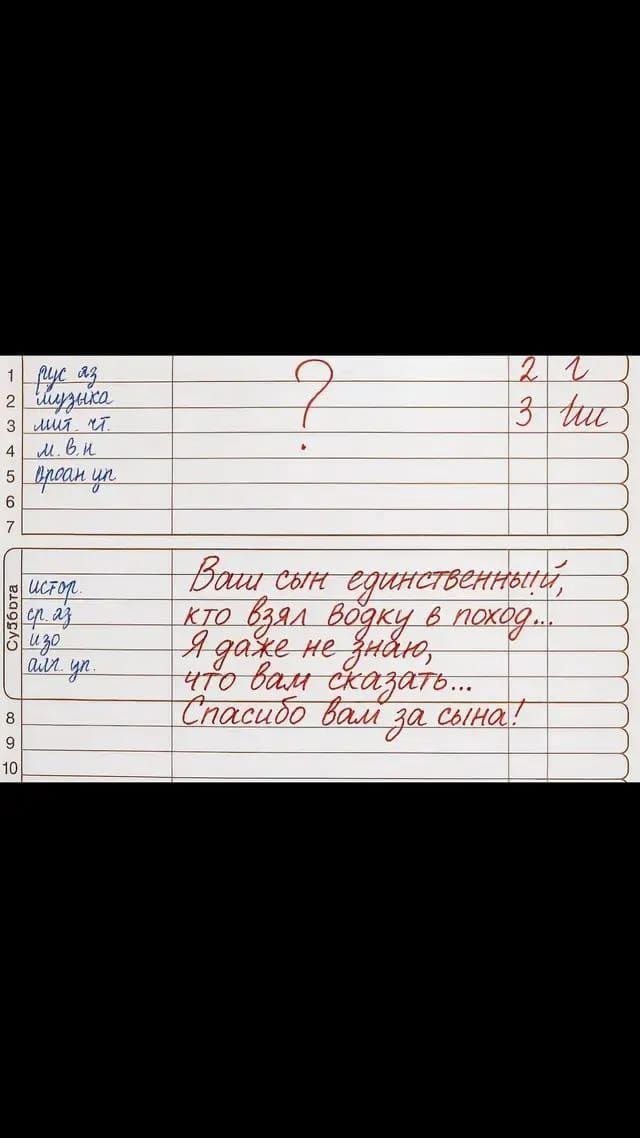 1 рус яз 2 г
2 музыка
?
3 мит. чт. 3 Ши
4 м.в.н
5 вроан уп
6
7
Суббота
истор.
ср. аз
изо
алг. уп.
Ваш сын единственный,
кто взял водку в поход...
Я даже не знаю,
что вам сказать...
8 Спасибо вам за сына!
9
10